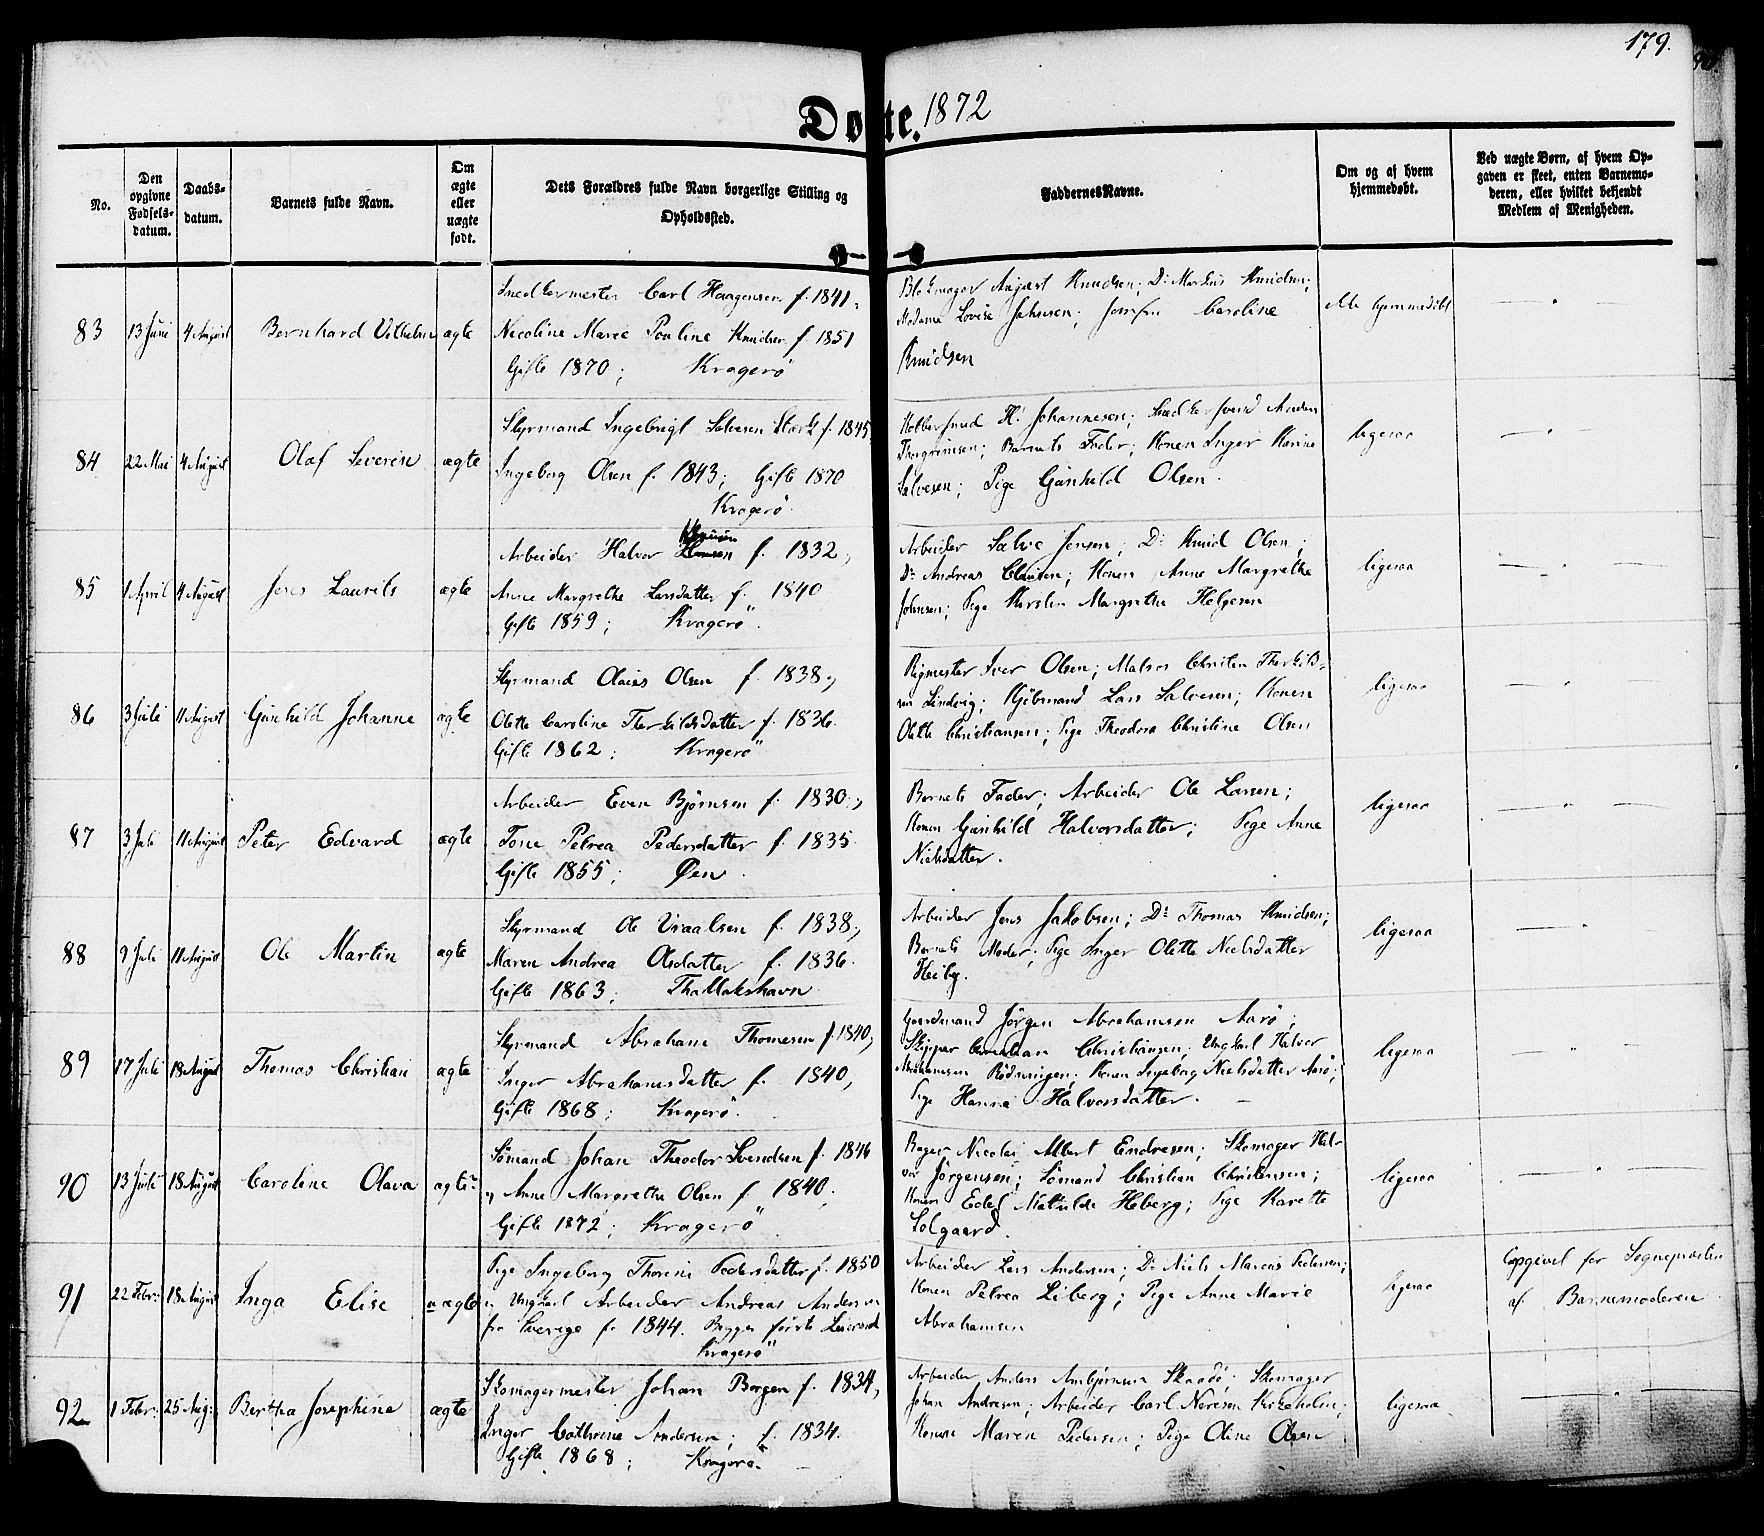 179.
Døbte. 1872
No.
Den opgivne Fødsels-datum.
Daabs-datum.
Barnets fulde Navn.
Om ægte eller uægte født.
Dets Forældres fulde Navn borgerlige Stilling og Opholdssted.
Faddernes Navne.
Om og af hvem hjemmedøbt.
Ved uægte Børn, af hvem Op-
gaven er skeet, enten Barnemo-
deren, eller hvilket bekjendt
Medlem af Menigheden.
83 13 Juni 4 August Bernhard Vilhelm ægte
Snedkermester Carl Haagensen f. 1841,
Nicoline Marie Pauline Knudsen f. 1851
Gifte 1870; Kragerö
Blokmager August Knudsen; Do Markus Knudsen;
Madame Lovise Johnsen; Jomfru Caroline
Knudsen
Ikke hjemmedöbt
84 22 Mai 4 August Olaf Severin ægte
Styrmand Ingebrigt Salvesen Stærk f. 1845,
Ingeborg Olsen f. 1843; Gifte 1870
Kragerö.
H. Johannesen; Snedkersvend Anders
Thorgrimsen; Barnets Fader; Konen Inger Karine
Salvesen; Pige Gunhild Olsen.
ligesaa
85 1 April 11 August Jens Laurits ægte
Arbeider Halvor f. 1832,
Anne Margrethe Larsdatter f. 1840
Gifte 1859; Kragerö.
Arbeider Salve Jensen; Do Knud Olsen;
Do Andreas Clausen; Konen Anne Margrethe
Johnsen; Pige Kirsten Margrethe Helgesen
ligesaa
86 3 Juli 11 August Gunhild Johanne ægte
Styrmand Olaus Olsen f. 1838,
Olette Caroline Therkildsdatter f. 1836.
Gifte 1862; Kragerö
Rigmester Iver Olsen; Matros Christen Therkild-
sen Lindvig; Kjöbmand Lars Salvesen; Konen
Olette Christiansen; Pige Theodora Christine Olsen
ligesaa
87 3 Juli 11 August Peter Edvard ægte
Arbeider Even Bjørnsen f. 1830,
Tone Petrea Pedersdatter f. 1835.
Gifte 1855; Øen.
Barnets Fader; Arbeider Ole Larsen;
Konen Gunhild Halvorsdatter; Pige Anne
Nielsdatter.
ligesaa
88 9 Juli 11 August Ole Martin ægte
Styrmand Ole Vraalsen f. 1838,
Maren Andrea Olsdatter f. 1836.
Gifte 1863; Thallakshavn
Arbeider Jens Jakobsen; Do Thomas Knudsen;
Barnets Moder; Pige Inger Olette Nielsdatter
Heiby.
ligesaa
89 17 Juli 18 August Thomas Christian ægte
Styrmand Abraham Thomesen f. 1840,
Inger Abrahamsdatter f. 1840,
Gifte 1868; Kragerö.
Gaardmand Jörgen Abrahamsen Aarö;
Skipper Christian Christiansen; Ungkarl Halvor
Abrahamsen Rödningen; Konen Ingeborg Nielsdatter Aarö;
Pige Hanna Halvorsdatter.
ligesaa
90 13 Juli 18 August Caroline Olava ægte
Sömand Johan Theodor Svendsen f. 1846
og Anne Margrethe Olsen f. 1840.
Gifte 1872; Kragerö
Bager Nicolai Albert Endresen; Skomager Hal-
vor Jörgensen; Sömand Christian Christensen;
Konen Edel Mathilde Heberg; Pige Karette
Solgaard.
ligesaa
91 22 Febr: 18 August Inga Elise uægte
Pige Ingeborg Thorine Pedersdatter f. 1850
og Ungkarl Arbeider Andreas Andersen
fra Sverige f. 1844. Begges förste Leiermaal
Kragerö
Arbeider Lars Andersen; Do Niels Marcus Pedersen;
Konen Petrea Liberg; Pige Anne Marie
Abrahamsen
ligesaa
Opgivet for Sognepræsten
af Barnemoderen
92 1 Febr: 25 Aug: Bertha Josephine ægte
Skomagermester Johan Borgen f. 1834,
Inger Cathrine Andersen; f. 1834.
Gifte 1868; Kragerö.
Arbeider Anders Ambjörnsen Skaadö; Skomager
Johan Andresen; Arbeider Carl Neresen Kirkeholm;
Konen Maren Pedersen; Pige Oline Olsen
ligesaa